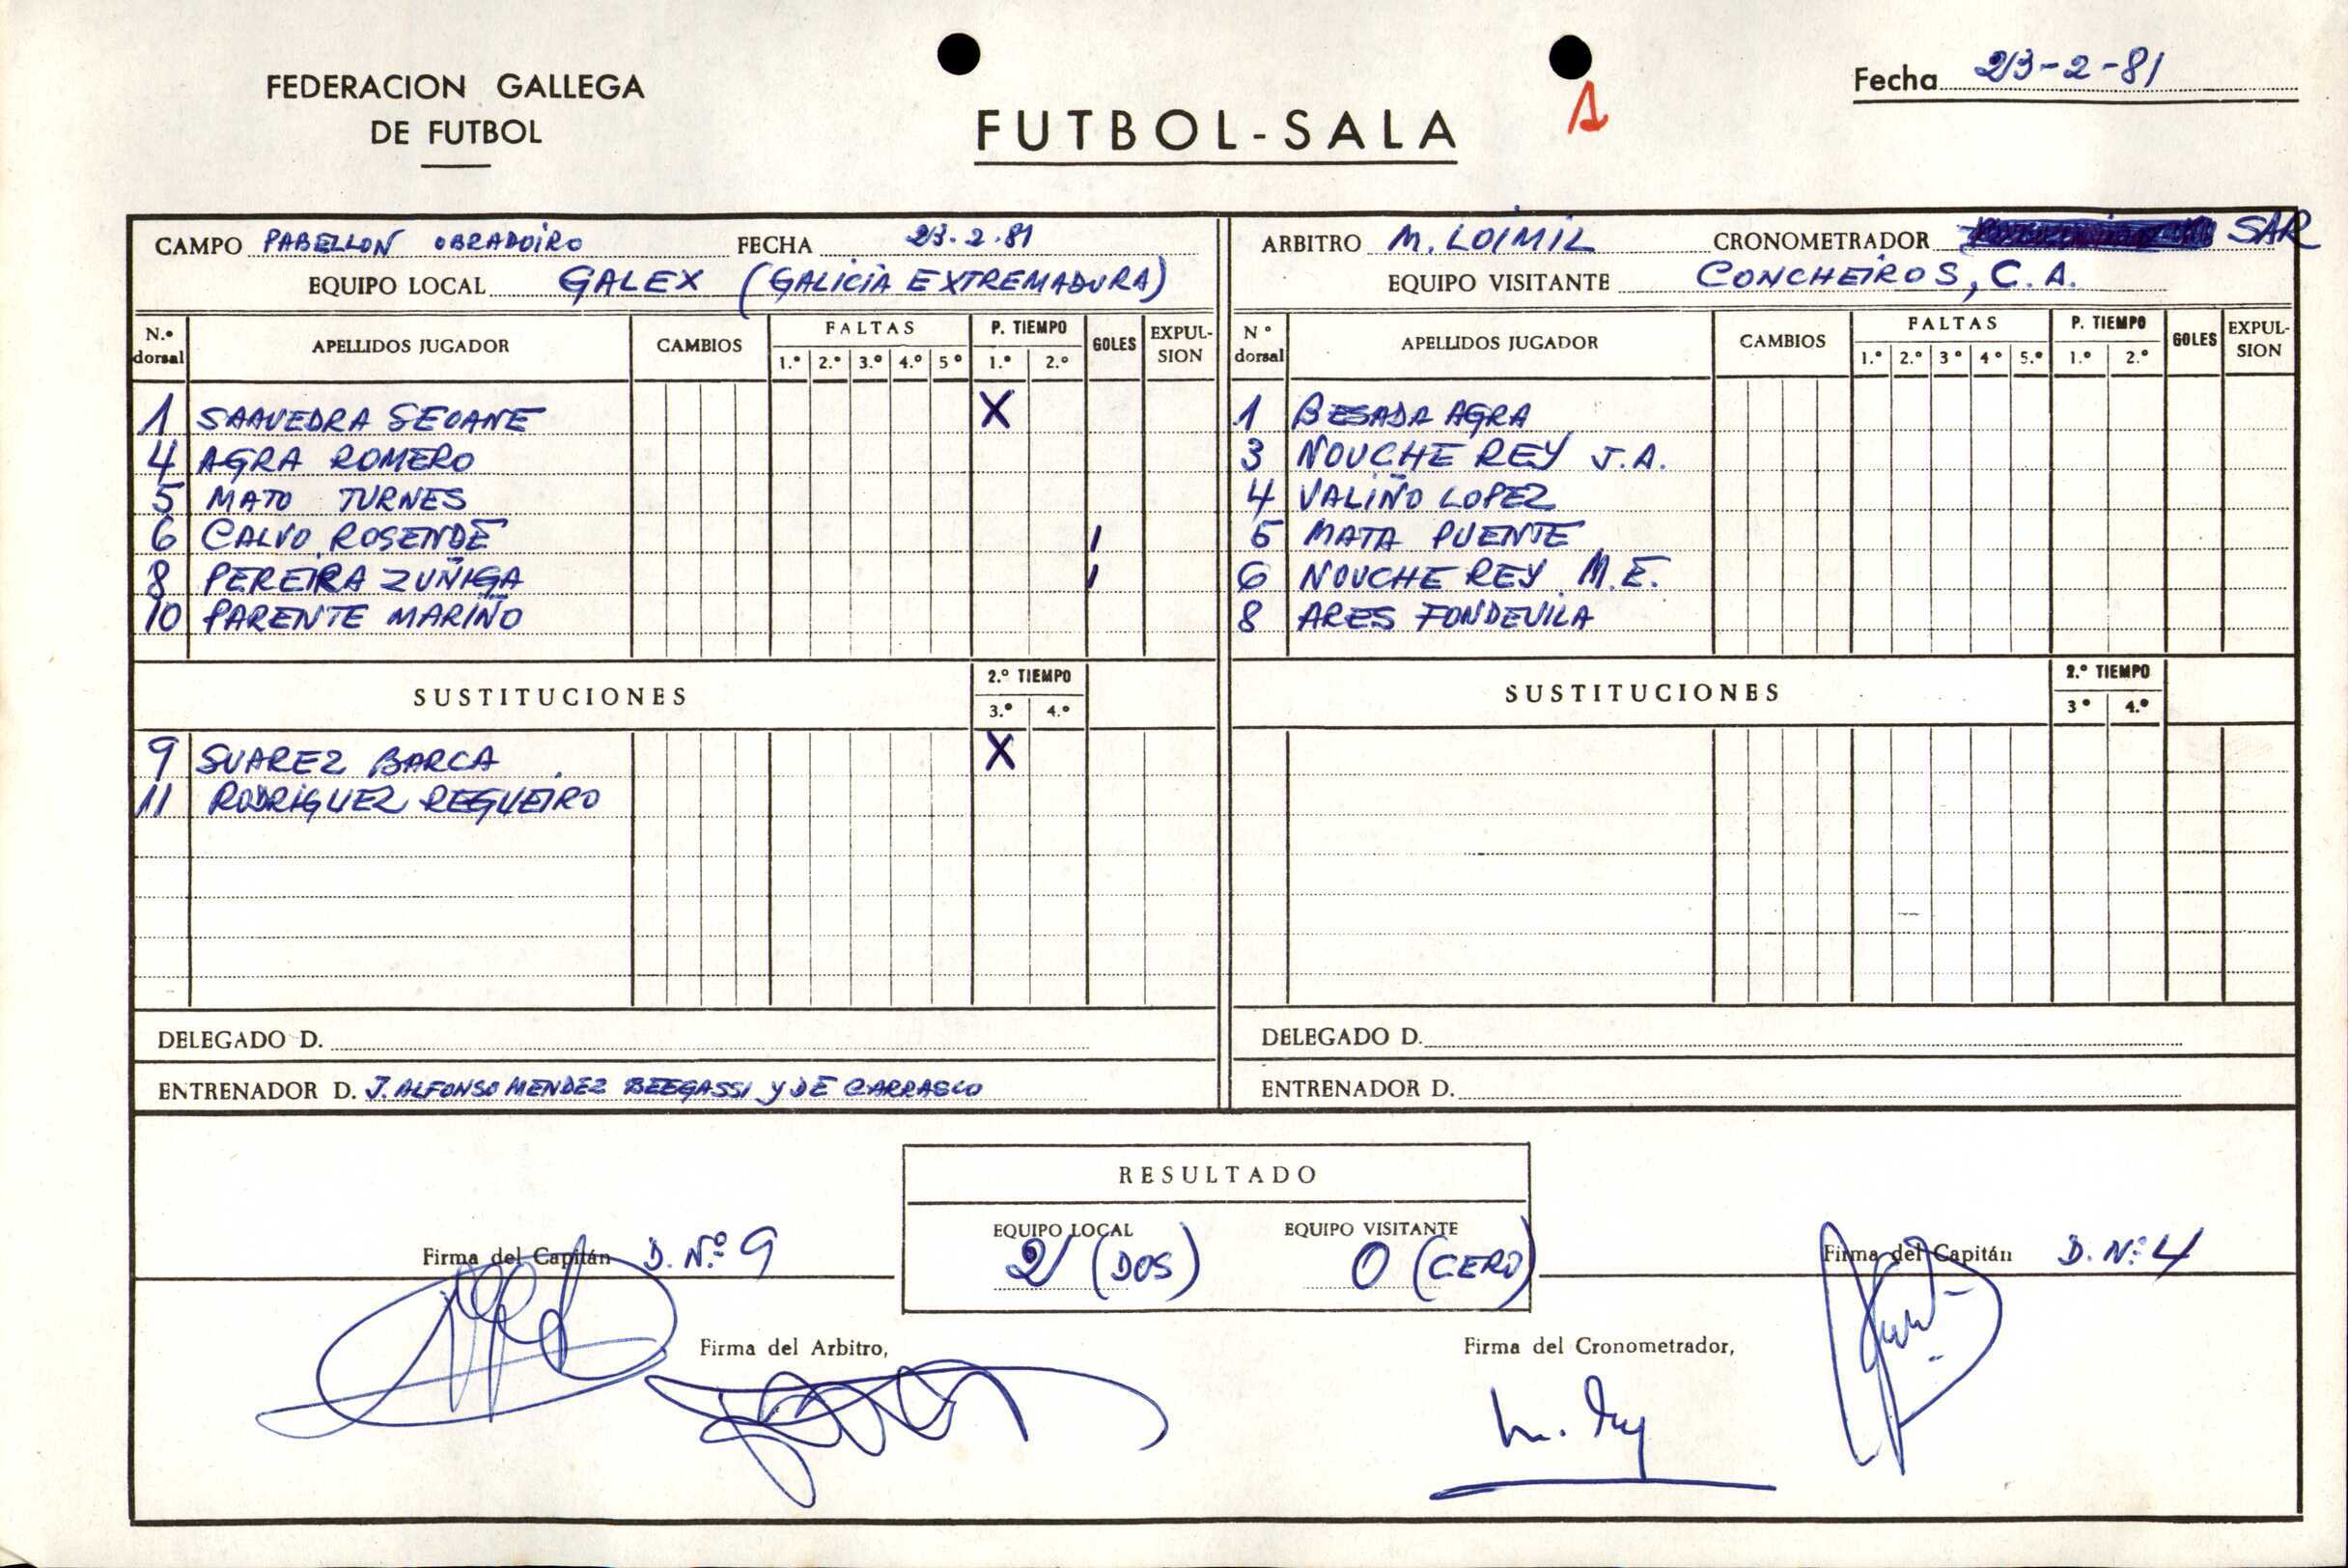 FEDERACION GALLEGA
DE FUTBOL
FUTBOL-SALA
1
Fecha 23-2-81
CAMPO PABELLON OBRADOIRO FECHA 23.2.81
EQUIPO LOCAL GALEX (GALICIA EXTREMADURA)
N.º dorsal APELLIDOS JUGADOR CAMBIOS FALTAS 1.º 2.º 3.º 4.º 5º P. TIEMPO 1.º 2.º GOLES EXPULSION
1 SAAVEDRA SEOANE X
4 AGRA ROMERO
5 MATO TURNES
6 CALVO ROSENDE 1
8 PEREIRA ZUÑIGA 1
10 PARENTE MARIÑO
SUSTITUCIONES 2.º TIEMPO 3.º 4.º
9 SUAREZ BARCA X
11 RODRIGUEZ REGUEIRO
DELEGADO D.
ENTRENADOR D. J. ALFONSO MENDEZ Y DE CARRASCO
ARBITRO M. LOIMIL CRONOMETRADOR SAR
EQUIPO VISITANTE CONCHEIROS, C.A.
Nº dorsal APELLIDOS JUGADOR CAMBIOS FALTAS 1.º 2.º 3º 4º 5.º P. TIEMPO 1.º 2.º GOLES EXPULSION
1 BESADA AGRA
3 NOUCHE REY J.A.
4 VALIÑO LOPEZ
5 MATA PUENTE
6 NOUCHE REY M.E.
8 ARES FONDEVILA
SUSTITUCIONES 2.º TIEMPO 3º 4.º
DELEGADO D.
ENTRENADOR D.
RESULTADO
EQUIPO LOCAL EQUIPO VISITANTE
2 (DOS) 0 (CERO)
Firma del Capitán D. Nº 9
Firma del Capitán D. Nº 4
Firma del Arbitro,
Firma del Cronometrador,